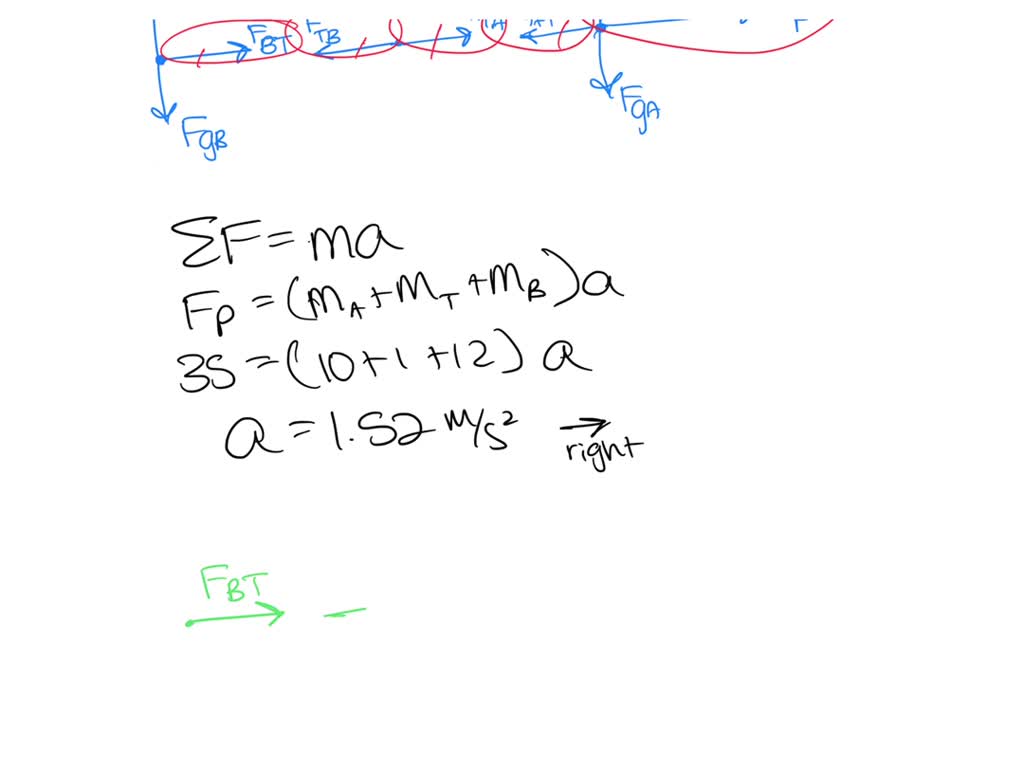 F_BT F_TB
F_gB
F_gA
ΣF = ma
F_p = (m_A + m_T + m_B) a
35 = (10 + 1 + 12) a
a = 1.52 m/s² →
right
F_BT